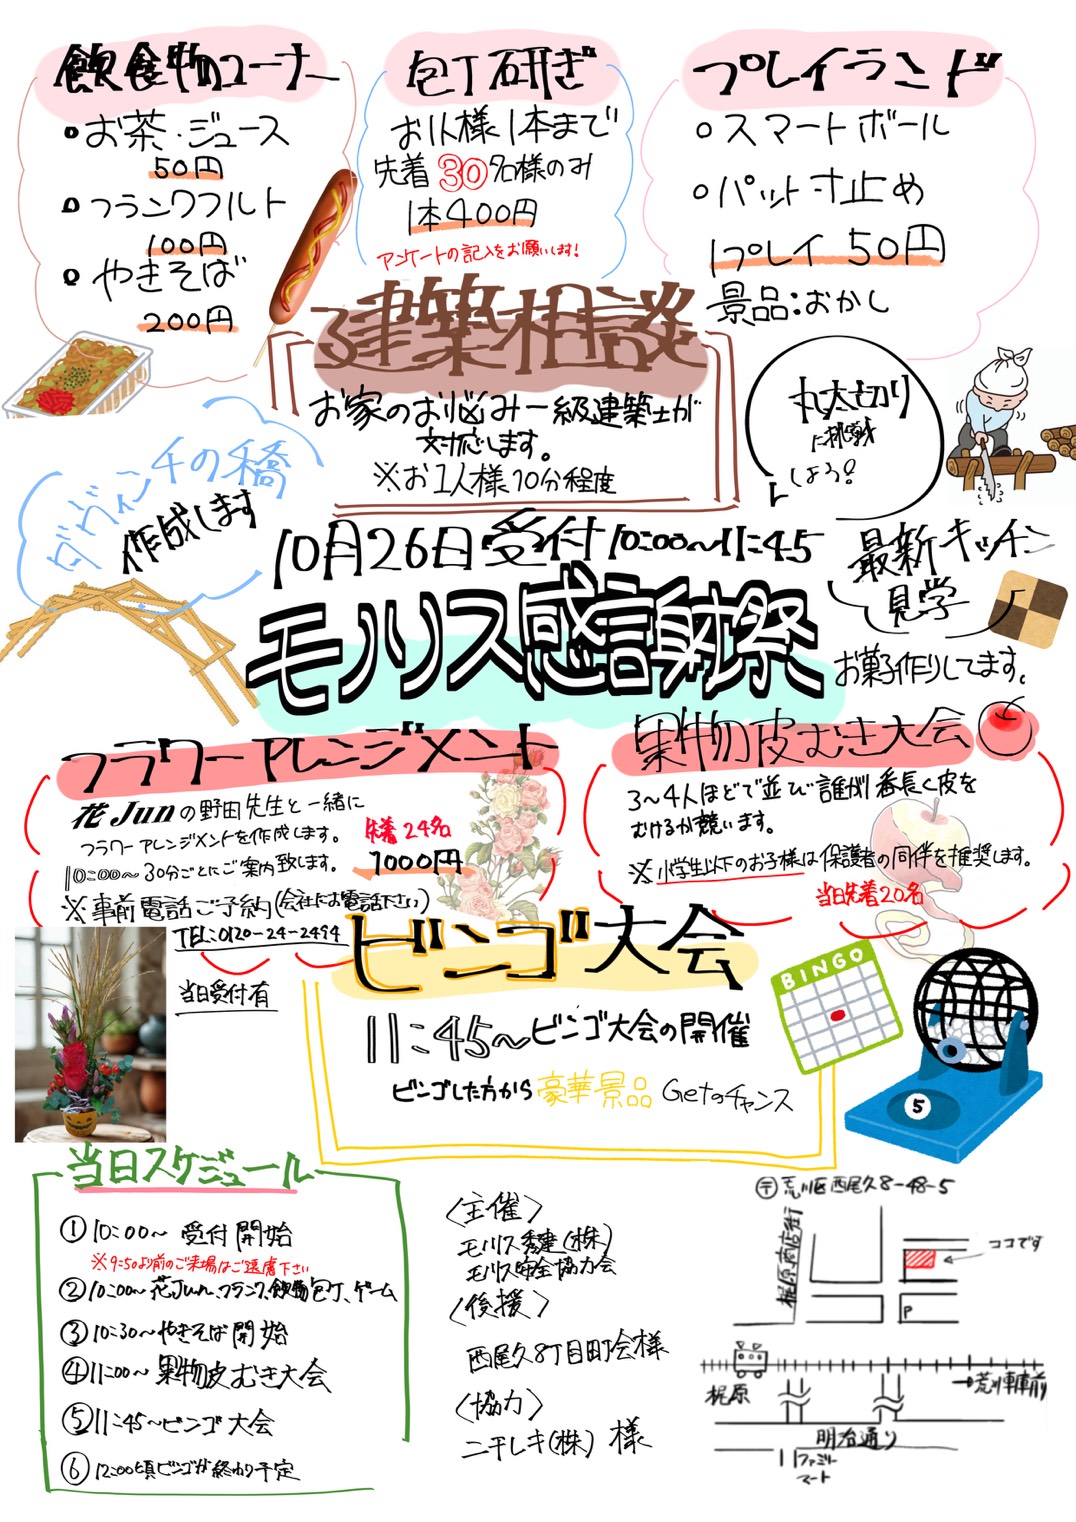 飲食物コーナー
・お茶・ジュース
50円
・フランクフルト
100円
・やきそば
200円
包丁研ぎ
お1人様1本まで
先着30名様のみ
1本400円
アンケートの記入をお願いします!
プレイランド
○スマートボール
○パット寸止め
1プレイ 50円
景品:おかし
建築相談
お家のお悩み一級建築士が
対応します。
※お1人様10分程度
丸太切り
に挑戦
しよう!
ダヴィンチの橋
作成します
10月26日受付10:00〜11:45
モノリス感謝祭
最新キッチン
見学
お菓子作りしてます。
フラワーアレンジメント
花Junの野田先生と一緒に
フラワーアレンジメントを作成します。
10:00〜30分ごとにご案内致します。
先着24名
1000円
※事前電話ご予約(会社にお電話下さい)
TEL:0120-24-2494
当日受付有
果物皮むき大会
3〜4人ほどで並び誰が1番長く皮を
むけるか競います。
※小学生以下のお子様は保護者の同伴を推奨します。
当日先着20名
ビンゴ大会
11:45〜ビンゴ大会の開催
ビンゴした方から豪華景品Getのチャンス
BINGO
5
当日スケジュール
①10:00〜 受付開始
※9:50より前のご来場はご遠慮下さい
②10:00〜花Jun、フランク、飲物、包丁、ゲーム
③10:30〜やきそば開始
④11:00〜果物皮むき大会
⑤11:45〜ビンゴ大会
⑥12:00頃ビンゴが終わり予定
〈主催〉
モノリス秀建(株)
モノリス安全協力会
〈後援〉
西尾久8丁目町会様
〈協力〉
ニチレキ(株)様
〒荒川区西尾久8-48-5
梶原商店街
ココです
P
梶原
→荒川車庫前
明治通り
ファミリー
マート